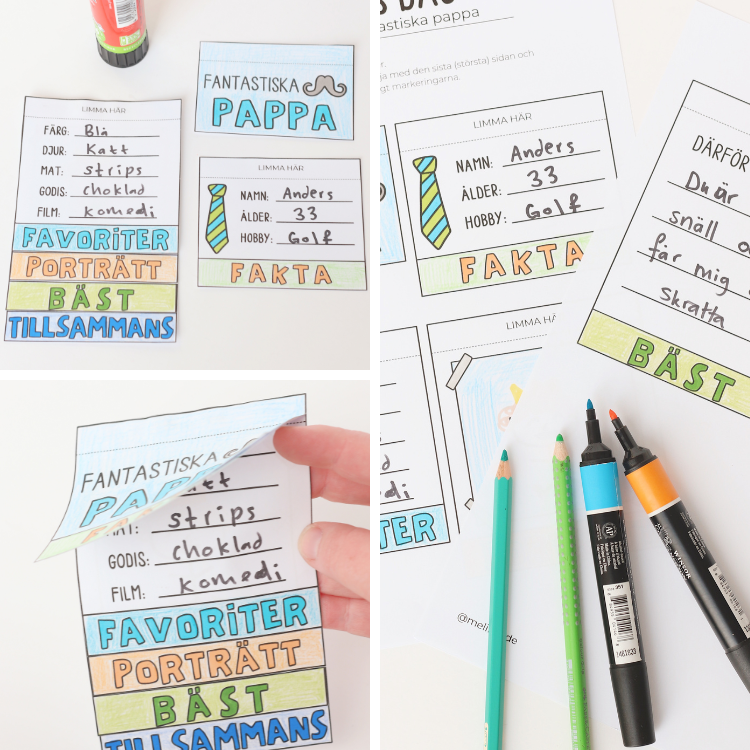 FANTASTISKA
PAPPA
LIMMA HÄR
FÄRG: Blå
DJUR: Katt
MAT: strips
GODIS: choklad
FILM: komedi
FAVORiTER
PORTRÄTT
BÄST
TILLSAMMANS
LIMMA HÄR
NAMN: Anders
ÅLDER: 33
HOBBY: Golf
FAKTA
FANTASTISKA
strips
GODIS: choklad
FILM: komedi
FAVORiTER
PORTRÄTT
BÄST
TILLSAMMANS
tastiska pappa
med den sista (största) sidan och
markeringarna.
LIMMA HÄR
NAMN: Anders
ÅLDER: 33
HOBBY: Golf
FAKTA
LIMMA HÄ
TER
DÄRFÖR
Du är
snäll
får mig
skratta
BÄST